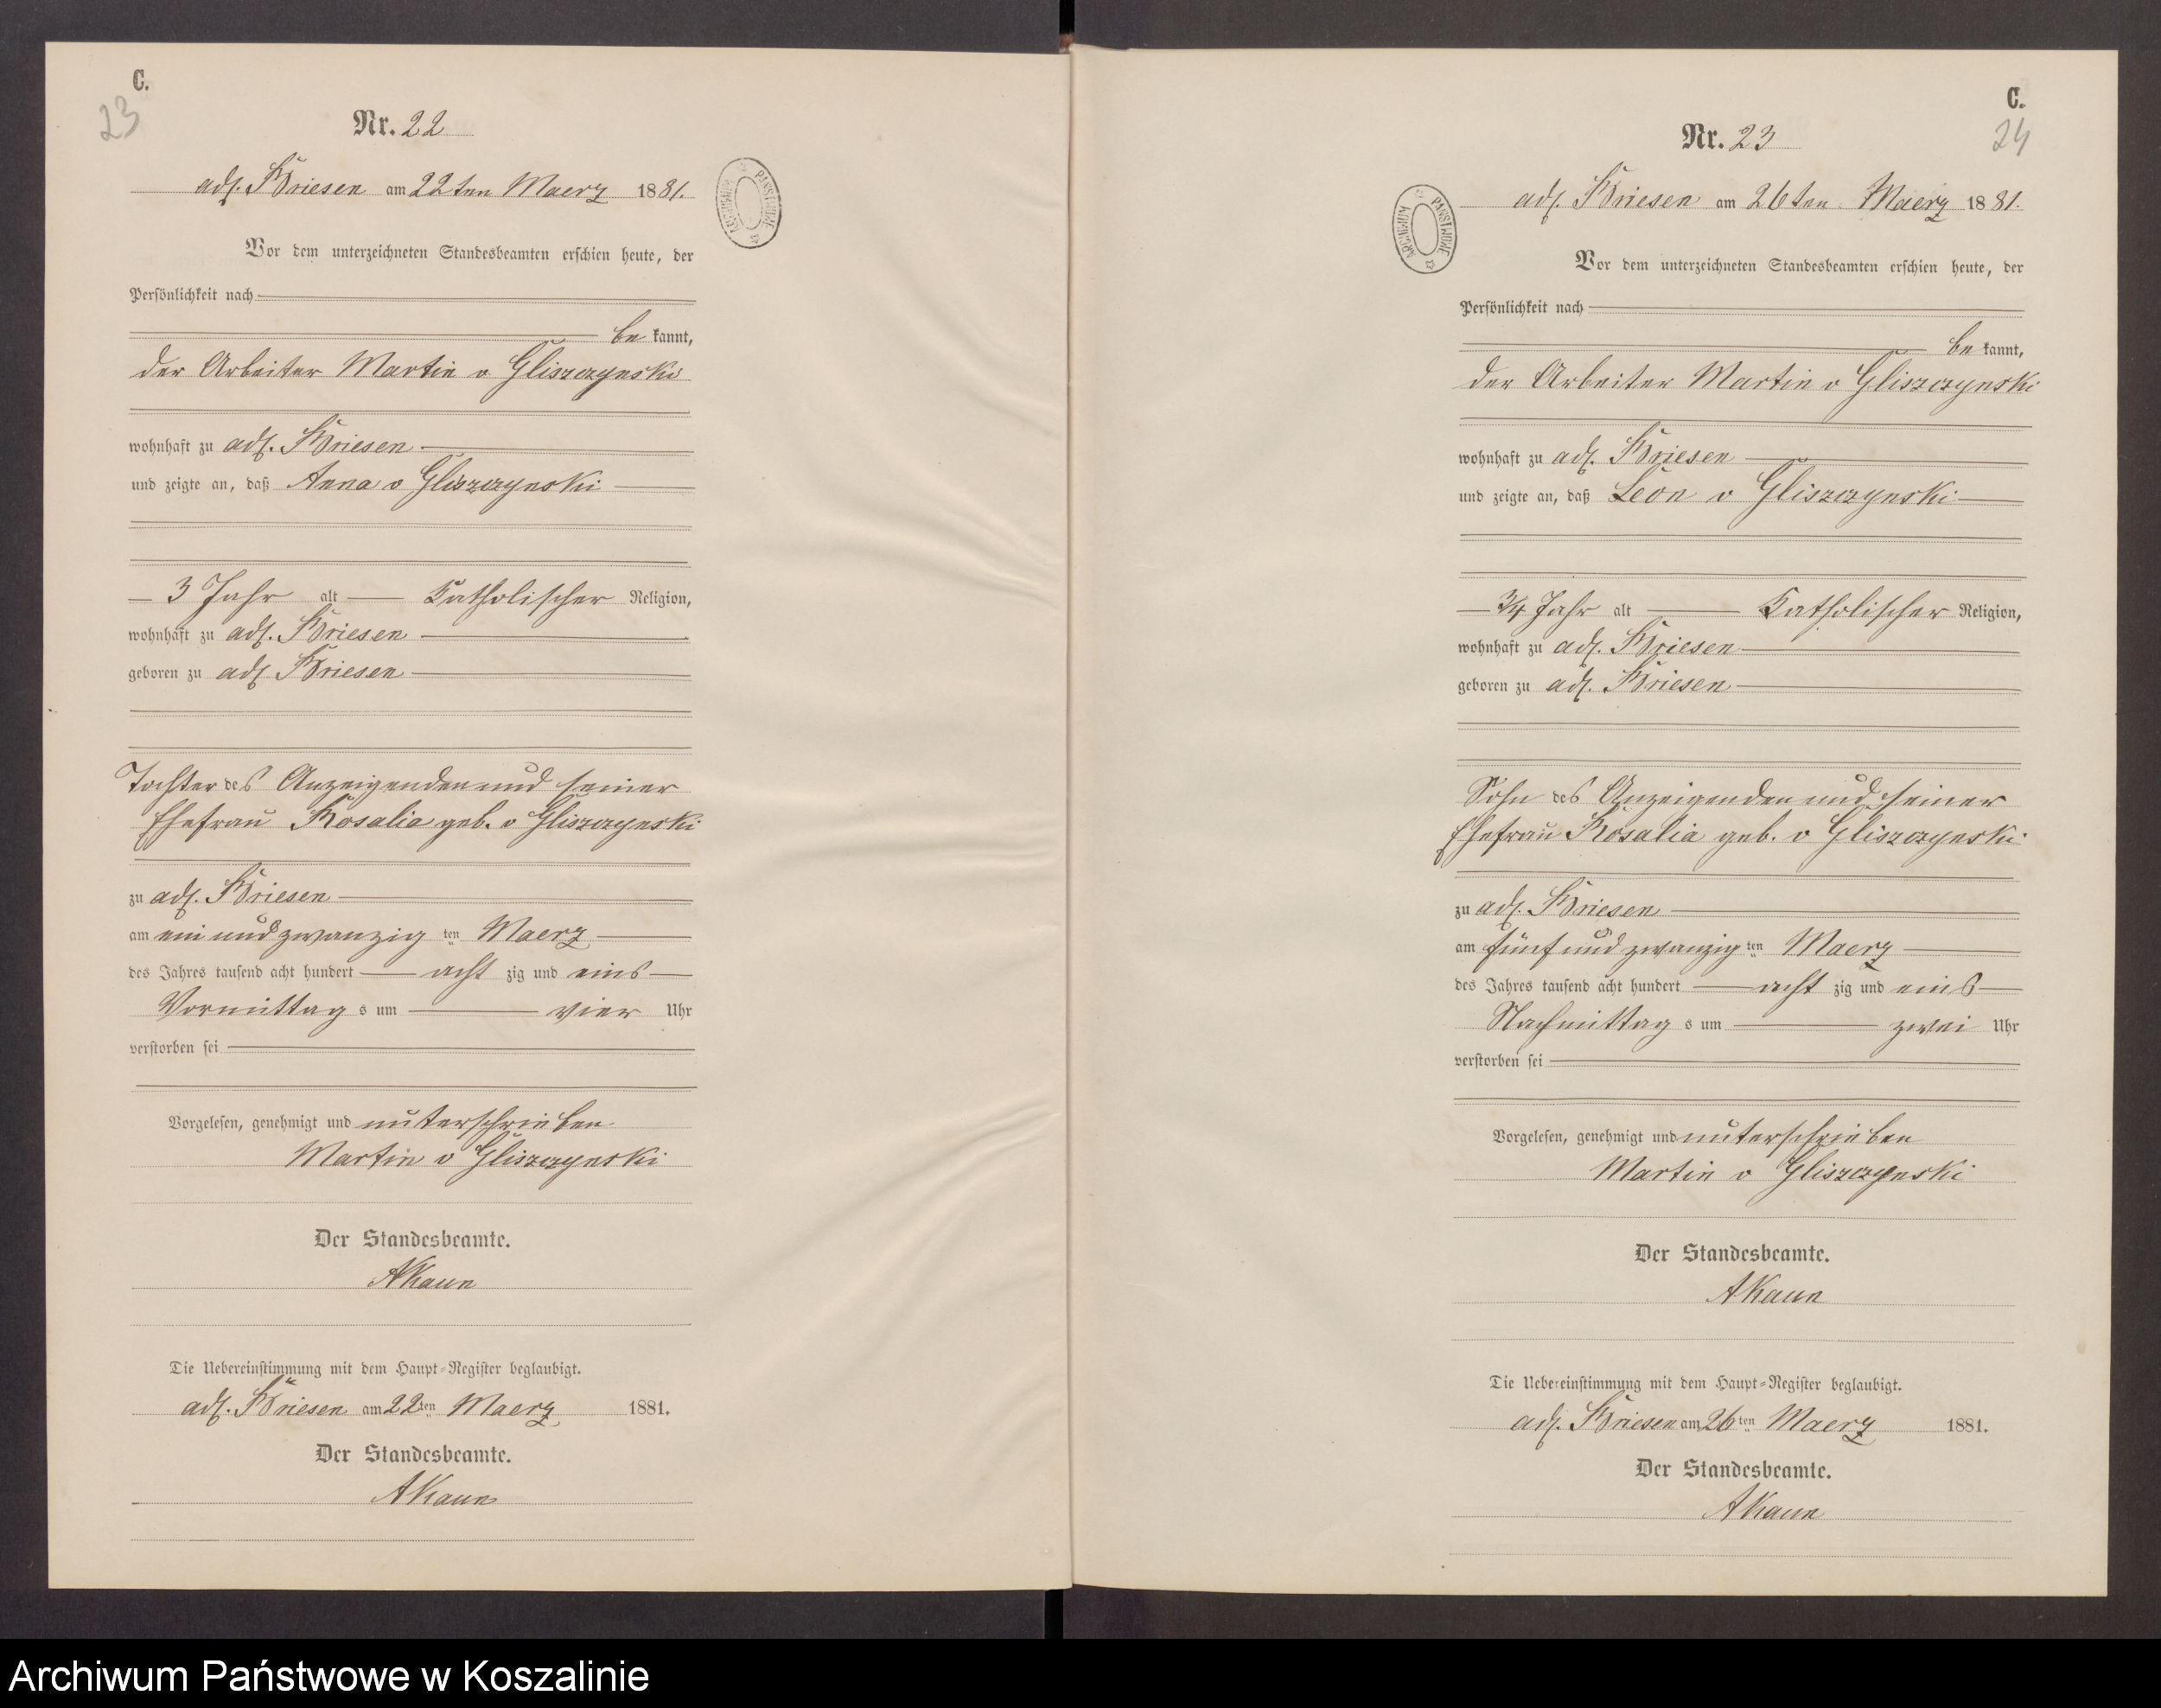 C.
23
Nr. 22
adl. Briesen am 22ten Maerz 1881.
ARCHIWUM PAŃSTWOWE
Vor dem unterzeichneten Standesbeamten erschien heute, der
Persönlichkeit nach
be kannt,
der Arbeiter Martin v Gliszczynski
wohnhaft zu adl. Briesen
und zeigte an, daß Anna v Gliszczynski
3 Jahr alt Katholischer Religion,
wohnhaft zu adl. Briesen
geboren zu adl Briesen
Tochter des Anzeigenden und seiner
Ehefrau Rosalia geb. v Gliszczynski
zu adl. Briesen
am ein und zwanzig ten Maerz
des Jahres tausend acht hundert acht zig und eins
Vormittag s um vier Uhr
verstorben sei
Vorgelesen, genehmigt und unterschrieben
Martin v Gliszczynski
Der Standesbeamte.
AKaun
Die Uebereinstimmung mit dem Haupt-Register beglaubigt.
adl. Briesen am 22ten Maerz 1881.
Der Standesbeamte.
AKaun
C.
24
Nr. 23
adl. Briesen am 26ten Maerz 1881.
ARCHIWUM PAŃSTWOWE
Vor dem unterzeichneten Standesbeamten erschien heute, der
Persönlichkeit nach
be kannt,
der Arbeiter Martin v Gliszczynski
wohnhaft zu adl. Briesen
und zeigte an, daß Leon v Gliszczynski
3/4 Jahr alt Katholischer Religion,
wohnhaft zu adl. Briesen
geboren zu adl. Briesen
Sohn des Anzeigenden und seiner
Ehefrau Rosalia geb. v Gliszczynski
zu adl. Briesen
am fünf und zwanzig ten Maerz
des Jahres tausend acht hundert acht zig und eins
Nachmittag s um zwei Uhr
verstorben sei
Vorgelesen, genehmigt und unterschrieben
Martin v Gliszczynski
Der Standesbeamte.
AKaun
Die Uebereinstimmung mit dem Haupt-Register beglaubigt.
adl. Briesen am 26ten Maerz 1881.
Der Standesbeamte.
AKaun
Archiwum Państwowe w Koszalinie